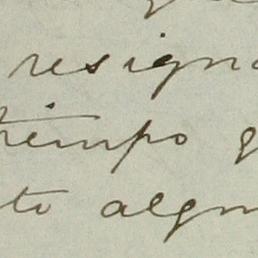 resigna
tiempo g
to algun